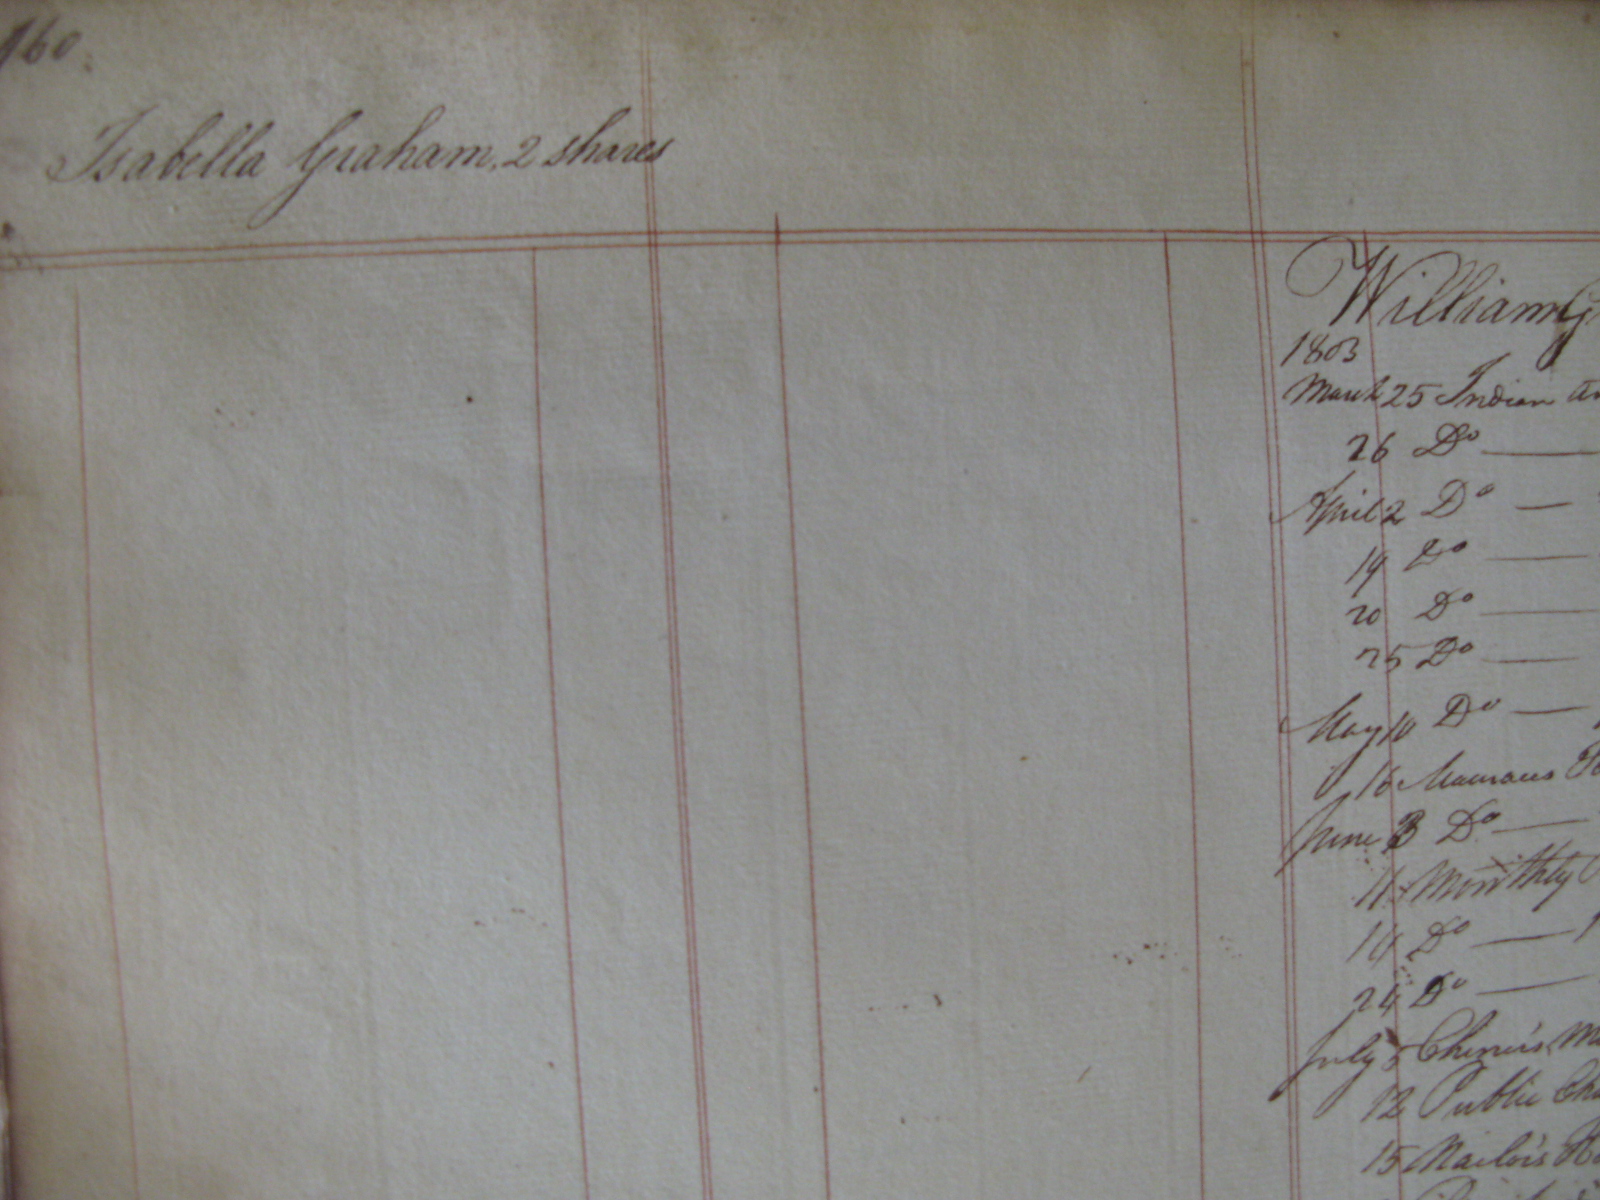 160
Isabella Graham, 2 shares
William G
1803
March 25 Indian
26 Do
April 2 Do
19 Do
20 Do
25 Do
May 10 Do
16
June 3 Do
11 Monthly
14 Do
24 Do
July 5
12 Public
15